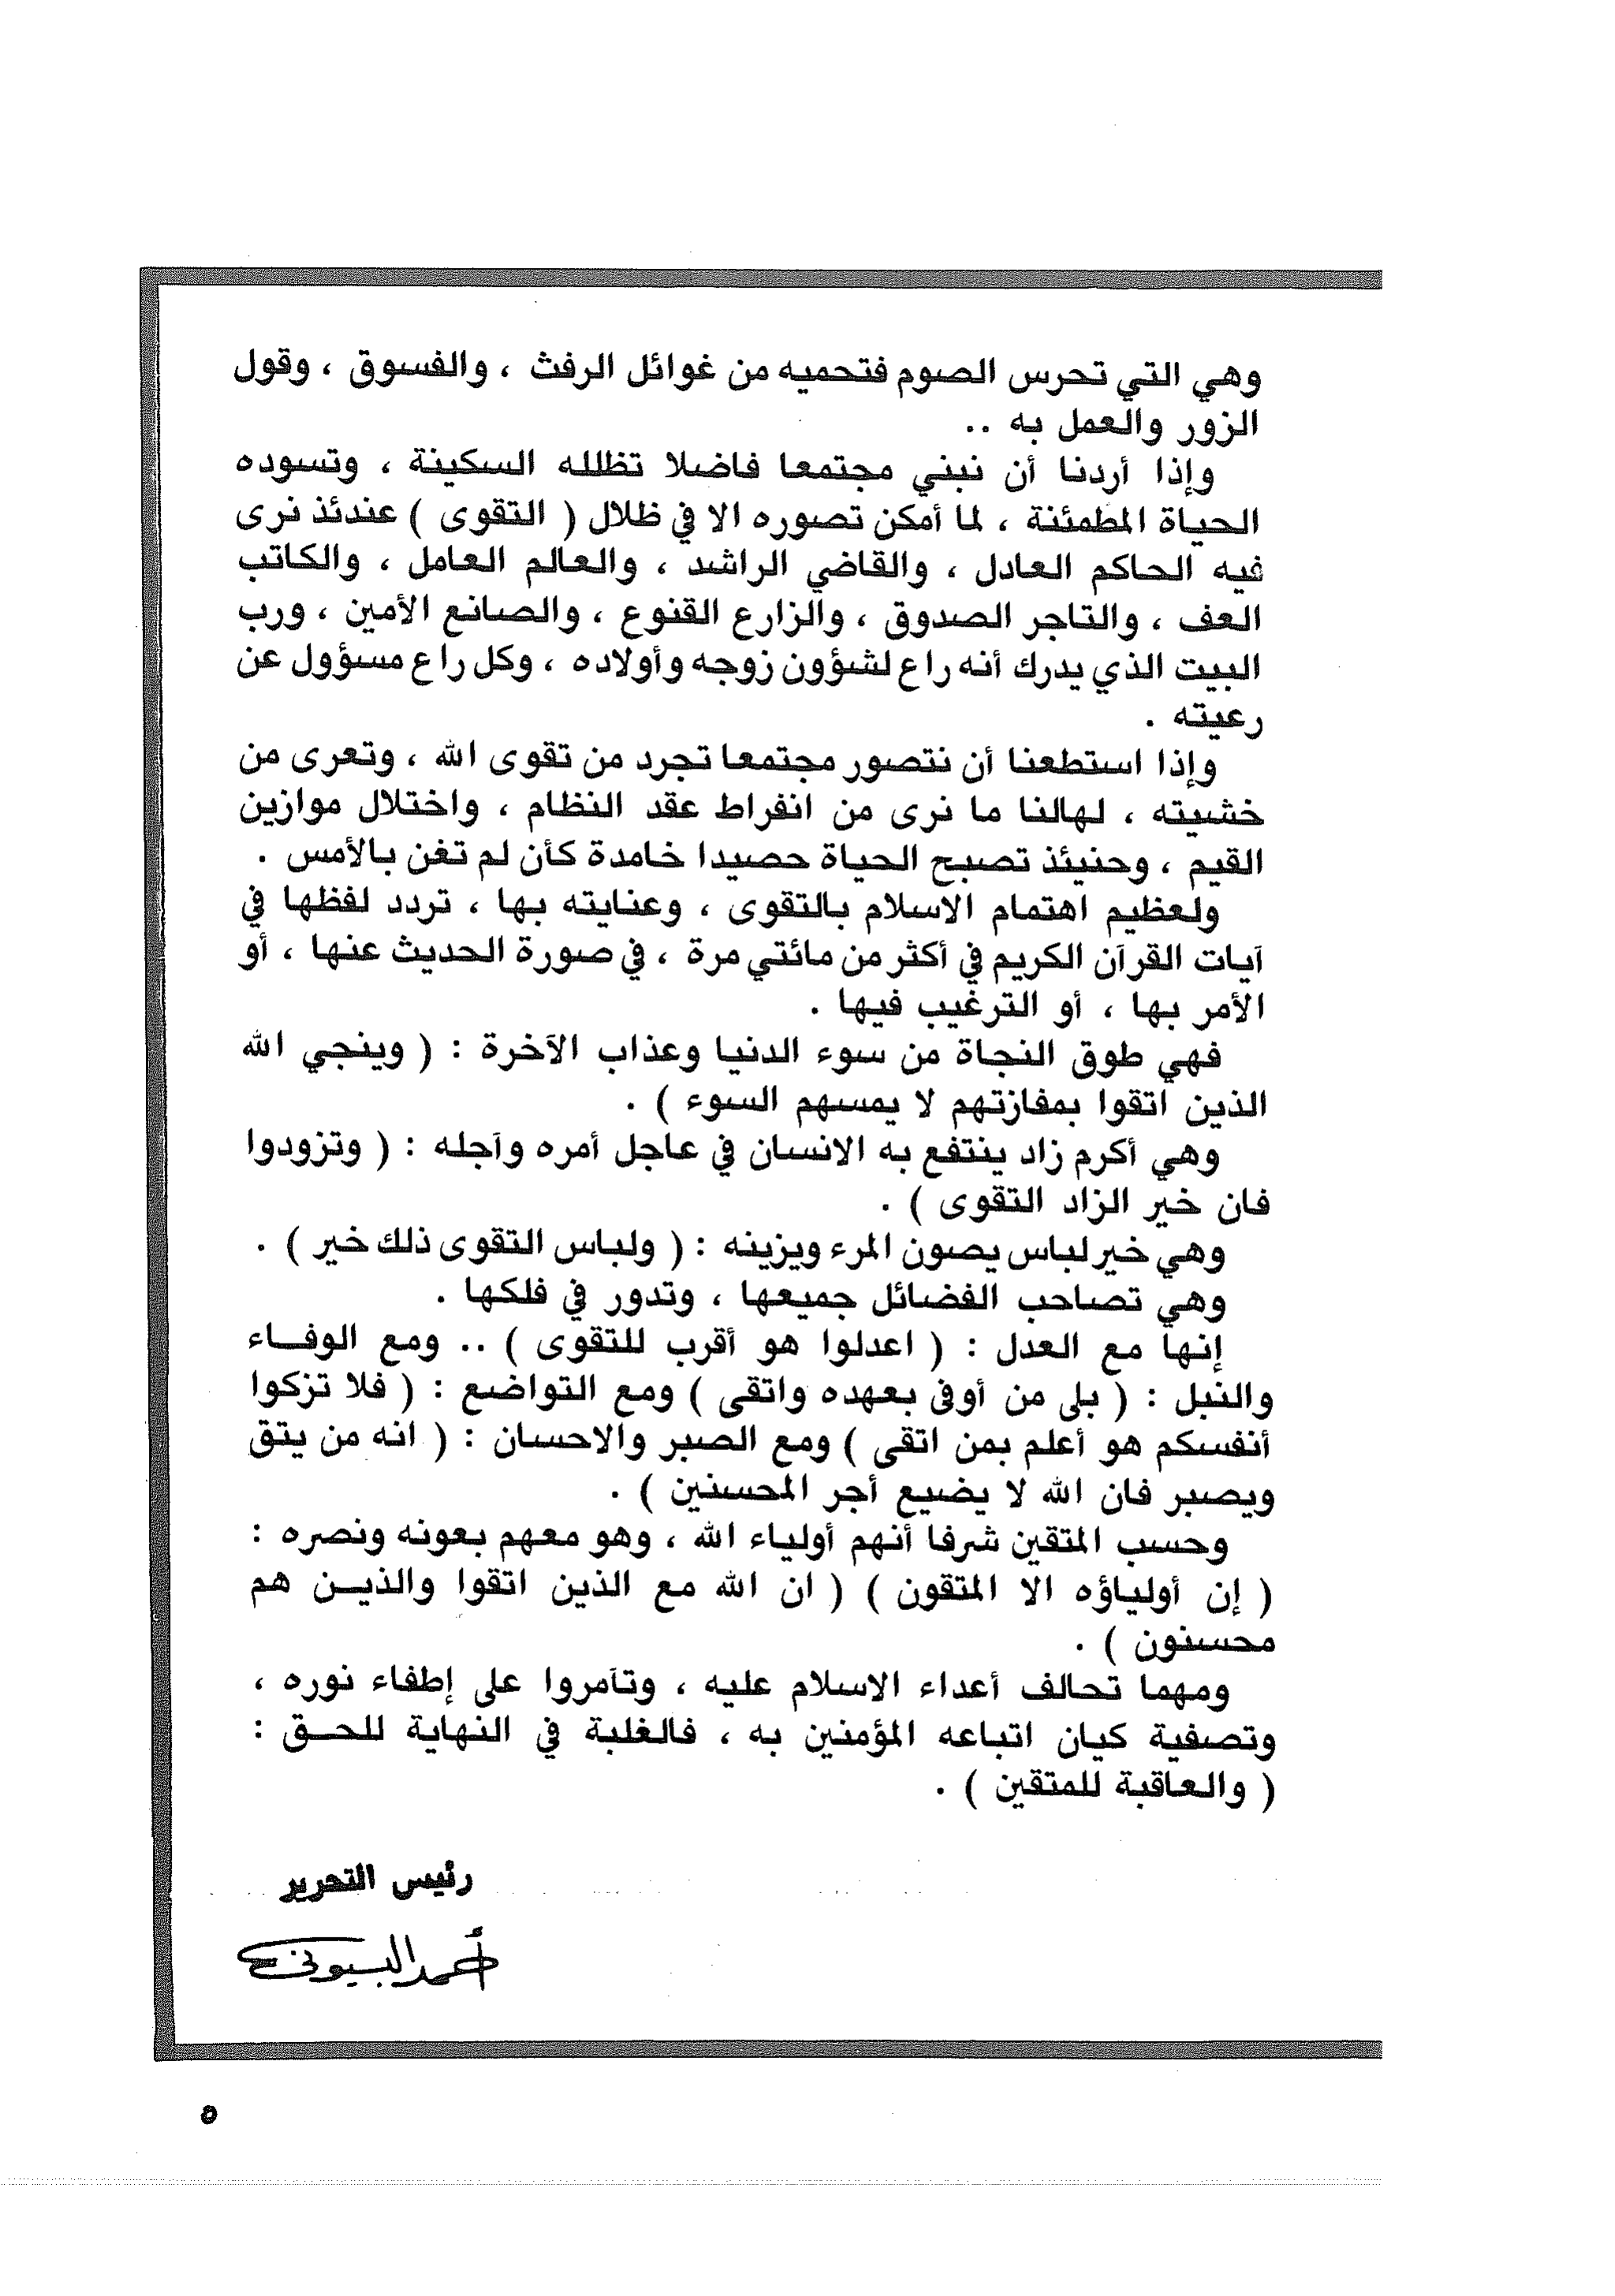 وهي التي تحرس الصوم فتحميه من غوائل الرفث ، والفسوق ، وقول
الزور والعمل به ..
وإذا أردنا أن نبني مجتمعا فاضلا تظلله السكينة ، وتسوده
الحياة المطمئنة ، لما أمكن تصوره الا في ظلال ( التقوى ) عندئذ نرى
فيه الحاكم العادل ، والقاضي الراشد ، والعالم العامل ، والكاتب
العف ، والتاجر الصدوق ، والزارع القنوع ، والصانع الأمين ، ورب
البيت الذي يدرك أنه راع لشؤون زوجه وأولاده ، وكل راع مسؤول عن
رعيته .
وإذا استطعنا أن نتصور مجتمعا تجرد من تقوى الله ، وتعرى من
خشيته ، لهالنا ما نرى من انفراط عقد النظام ، واختلال موازين
القيم ، وحنيئذ تصبح الحياة حصيدا خامدة كأن لم تغن بالأمس .
ولعظيم اهتمام الاسلام بالتقوى ، وعنايته بها ، تردد لفظها في
آيات القرآن الكريم في أكثر من مائتي مرة ، في صورة الحديث عنها ، أو
الأمر بها ، أو الترغيب فيها .
فهي طوق النجاة من سوء الدنيا وعذاب الآخرة : ( وينجي الله
الذين اتقوا بمفازتهم لا يمسهم السوء ) .
وهي أكرم زاد ينتفع به الانسان في عاجل أمره وآجله : ( وتزودوا
فان خير الزاد التقوى ) .
وهي خير لباس يصون المرء ويزينه : ( ولباس التقوى ذلك خير ) .
وهي تصاحب الفضائل جميعها ، وتدور في فلكها .
إنها مع العدل : ( اعدلوا هو أقرب للتقوى ) .. ومع الوفــاء
والنبل : ( بلى من أوفى بعهده واتقى ) ومع التواضع : ( فلا تزكوا
أنفسكم هو أعلم بمن اتقى ) ومع الصبر والاحسان : ( انه من يتق
ويصبر فان الله لا يضيع أجر المحسنين ) .
وحسب المتقين شرفا أنهم أولياء الله ، وهو معهم بعونه ونصره :
( إن أولياؤه الا المتقون ) ( ان الله مع الذين اتقوا والذيــن هم
محسنون ) .
ومهما تحالف أعداء الاسلام عليه ، وتآمروا على إطفاء نوره ،
وتصفية كيان اتباعه المؤمنين به ، فالغلبة في النهاية للحــق :
( والعاقبة للمتقين ) .
رئيس التحرير
أحمد البسيوني
٥